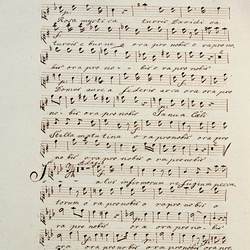 Rosa mystica turris Davidica
turris eburnea ora pro nobis ora pro no
bis ora pro nobis ora pro nobis
Domus aurea foederis arca ora ora pro
nobis ora pro nobis Janua Cæli
Stella matutina o ra pro nobis ora pro
nobis ora pro nobis o ra pro nobis
Salus infirmorum refugium pecca
torum o ra pro nobis o ra pro nobis
ora pro nobis ora pro nobis ora pro no